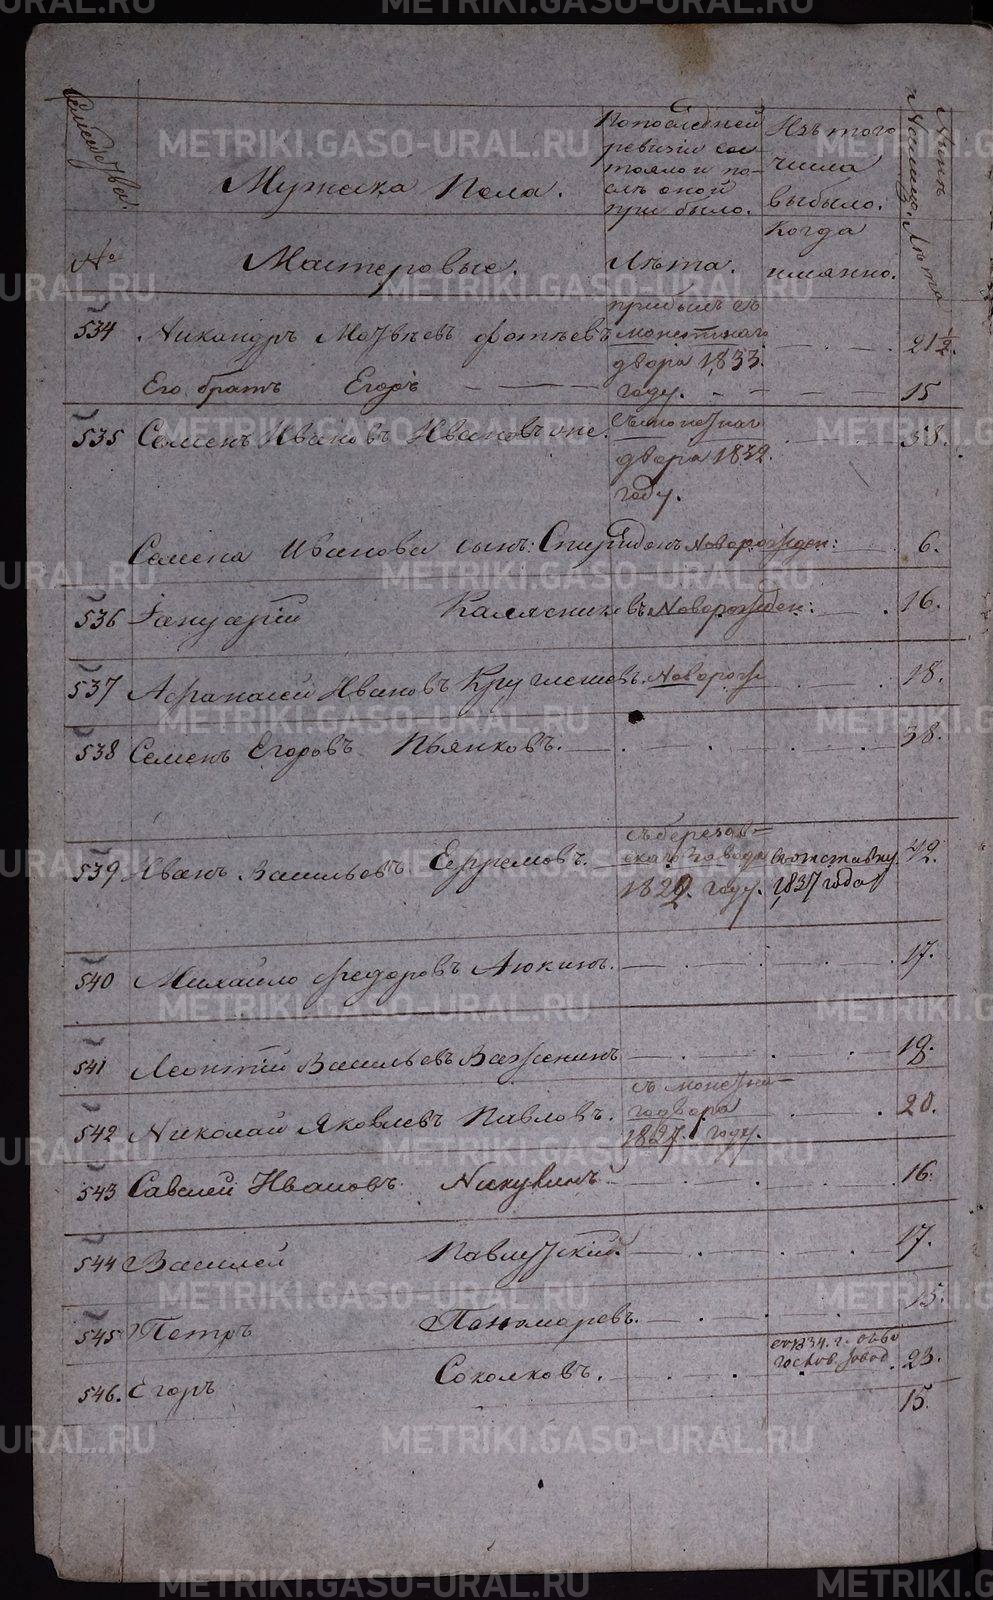 Семейства.
№
Мужеска Пола.
Мастеровые.
По последней
ревизіи сос
тояло и по-
слѣ оной
прибыло.
Лѣта.
Изъ того
числа
выбыло.
Когда
имянно.
Нынѣ
на лицо.
Лѣта
534 Никандръ Матвѣевъ Фотѣевъ прибылъ съ
монетнаго
двора 1833.
году. 21½.
Его братъ Егоръ 15
535 Семенъ Ивановъ Ивановъ съ монетнаго
двора 1832.
году. 58.
Семена Иванова сынъ: Спиридонъ Новорожден: 6.
536 Іануарій Калясниковъ Новорожден: 16.
537 Афанасей Ивановъ Круглешевъ Новорож 18.
538 Семенъ Егоровъ Пьянковъ. 38.
539 Иванъ Васильевъ Ефремовъ съ березов-
скаго завода въ отставку
1829. году. 1837 года 49.
540 Михаило Федоровъ Аюкинъ. 17.
541 Леонтій Васильевъ Важенинъ 18.
542 Николай Яковлевъ Павловъ. съ монетна-
го двора
1827. году. 20.
543 Савелей Ивановъ Никулинъ 16.
544 Василей Павлуцкій. 17.
545 Петръ Пономаревъ. 15.
546. Егоръ Соколковъ. въ 1834. г.
завод. 23.
15.
METRIKI.GASO-URAL.RU